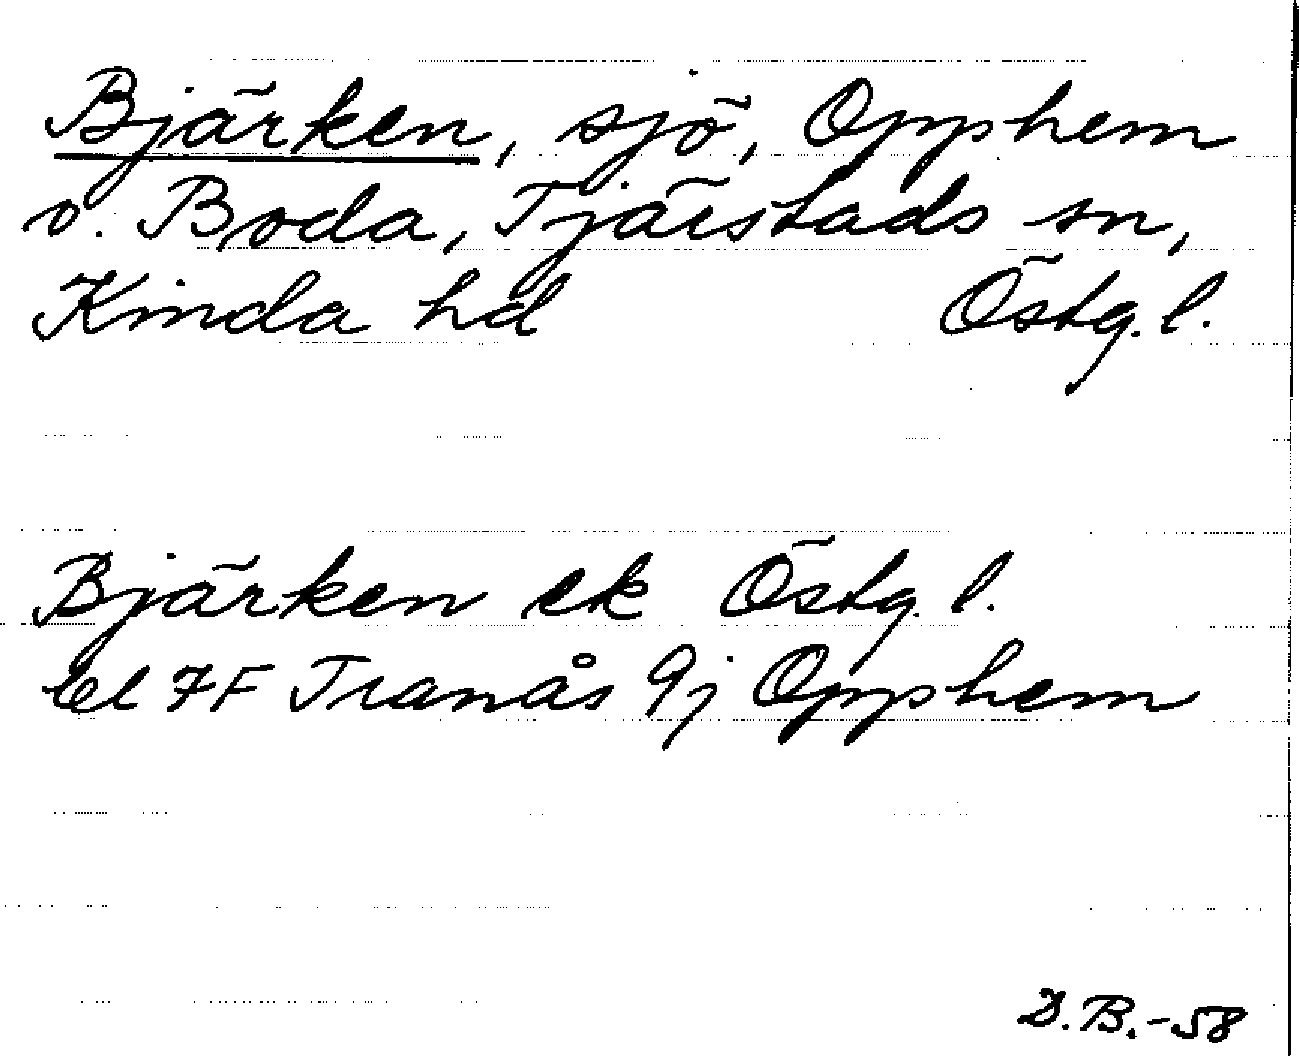 Bjärken, sjö, Opphem
o. Boda, Tjärstads sn,
Kinda hd Östg. l.
Bjärken ek Östg. l.
bl 7F Tranås 9j Opphem
D.B.-58